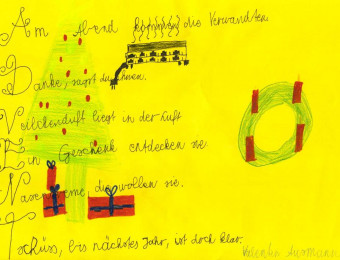 Am Abend kommen die Verwandten.
Danke, sagst du ihnen.
Veilchenduft liegt in der Luft
Ein Geschenk entdecken sie
Nasencreme, die wollen sie.
Tschüss, bis nächstes Jahr, ist doch klar.